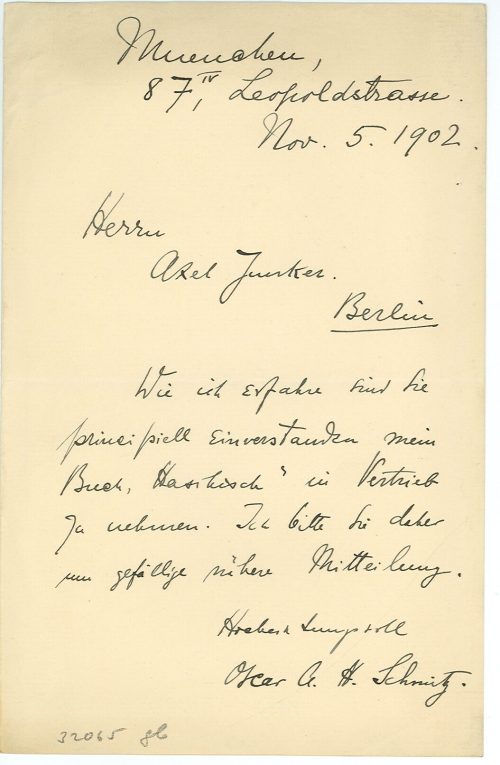 Muenchen,
87, IV Leopoldstrasse.
Nov. 5. 1902.
Herrn
Axel Juncker.
Berlin
Wie ich erfahre sind Sie
principiell einverstanden mein
Buch „Haschisch“ in Vertrieb
zu nehmen. Ich bitte Sie daher
um gefällige nähere Mitteilung.
Hochachtungsvoll
Oscar A. H. Schmitz.
32065 glb